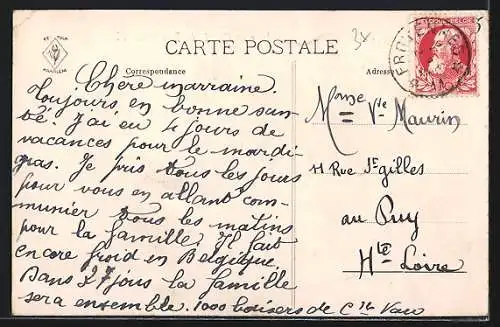 CARTE POSTALE
Correspondance
Adresse
Chère marraine.
Toujours en bonne san-
té. J'ai eu 4 jours de
vacances pour le mardi-
gras. Je pris tous les jours
pour vous en allant com-
munier tous les matins
pour la famille. Il fait
encore froid en Belgique.
Dans 27 jours la famille
sera ensemble. 1000 baisers de
Mme Vve Maurin
11 Rue St gilles
au Puy
Hte Loire